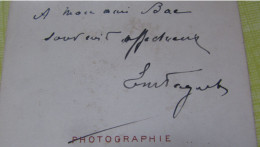 A mon ami Bac
souvenir affectueux
PHOTOGRAPHIE